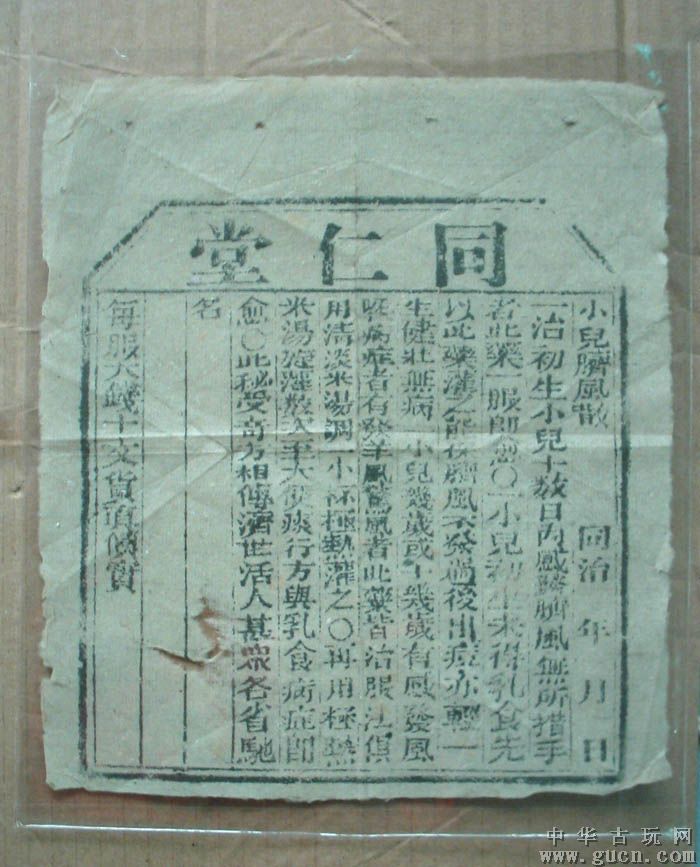 同仁堂
小兒臍風散　同治 年 月 日
一治初生小兒七數日內感臍風無所措手
者此藥一服即愈〇一小兒初生未得乳食先
以此藥灌之能使臍風不發過後出痘亦輕一
生健壯無病一小兒幾歲或十幾歲有感發風
病症者有發羊風驚風者此藥皆治服法俱
用清淡米湯調一小杯極熱灌之〇再用極熱
米湯灌數次至大便痰行方與乳食病症即
愈〇此秘受奇方相傳濟世活人甚眾各省馳
名
每服大錢十文貨真價實
中华古玩网
www.gucn.com